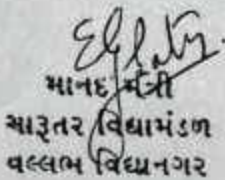 માનદ્ મંત્રી
ચારૂતર વિદ્યામંડળ
વલ્લભ વિદ્યાનગર